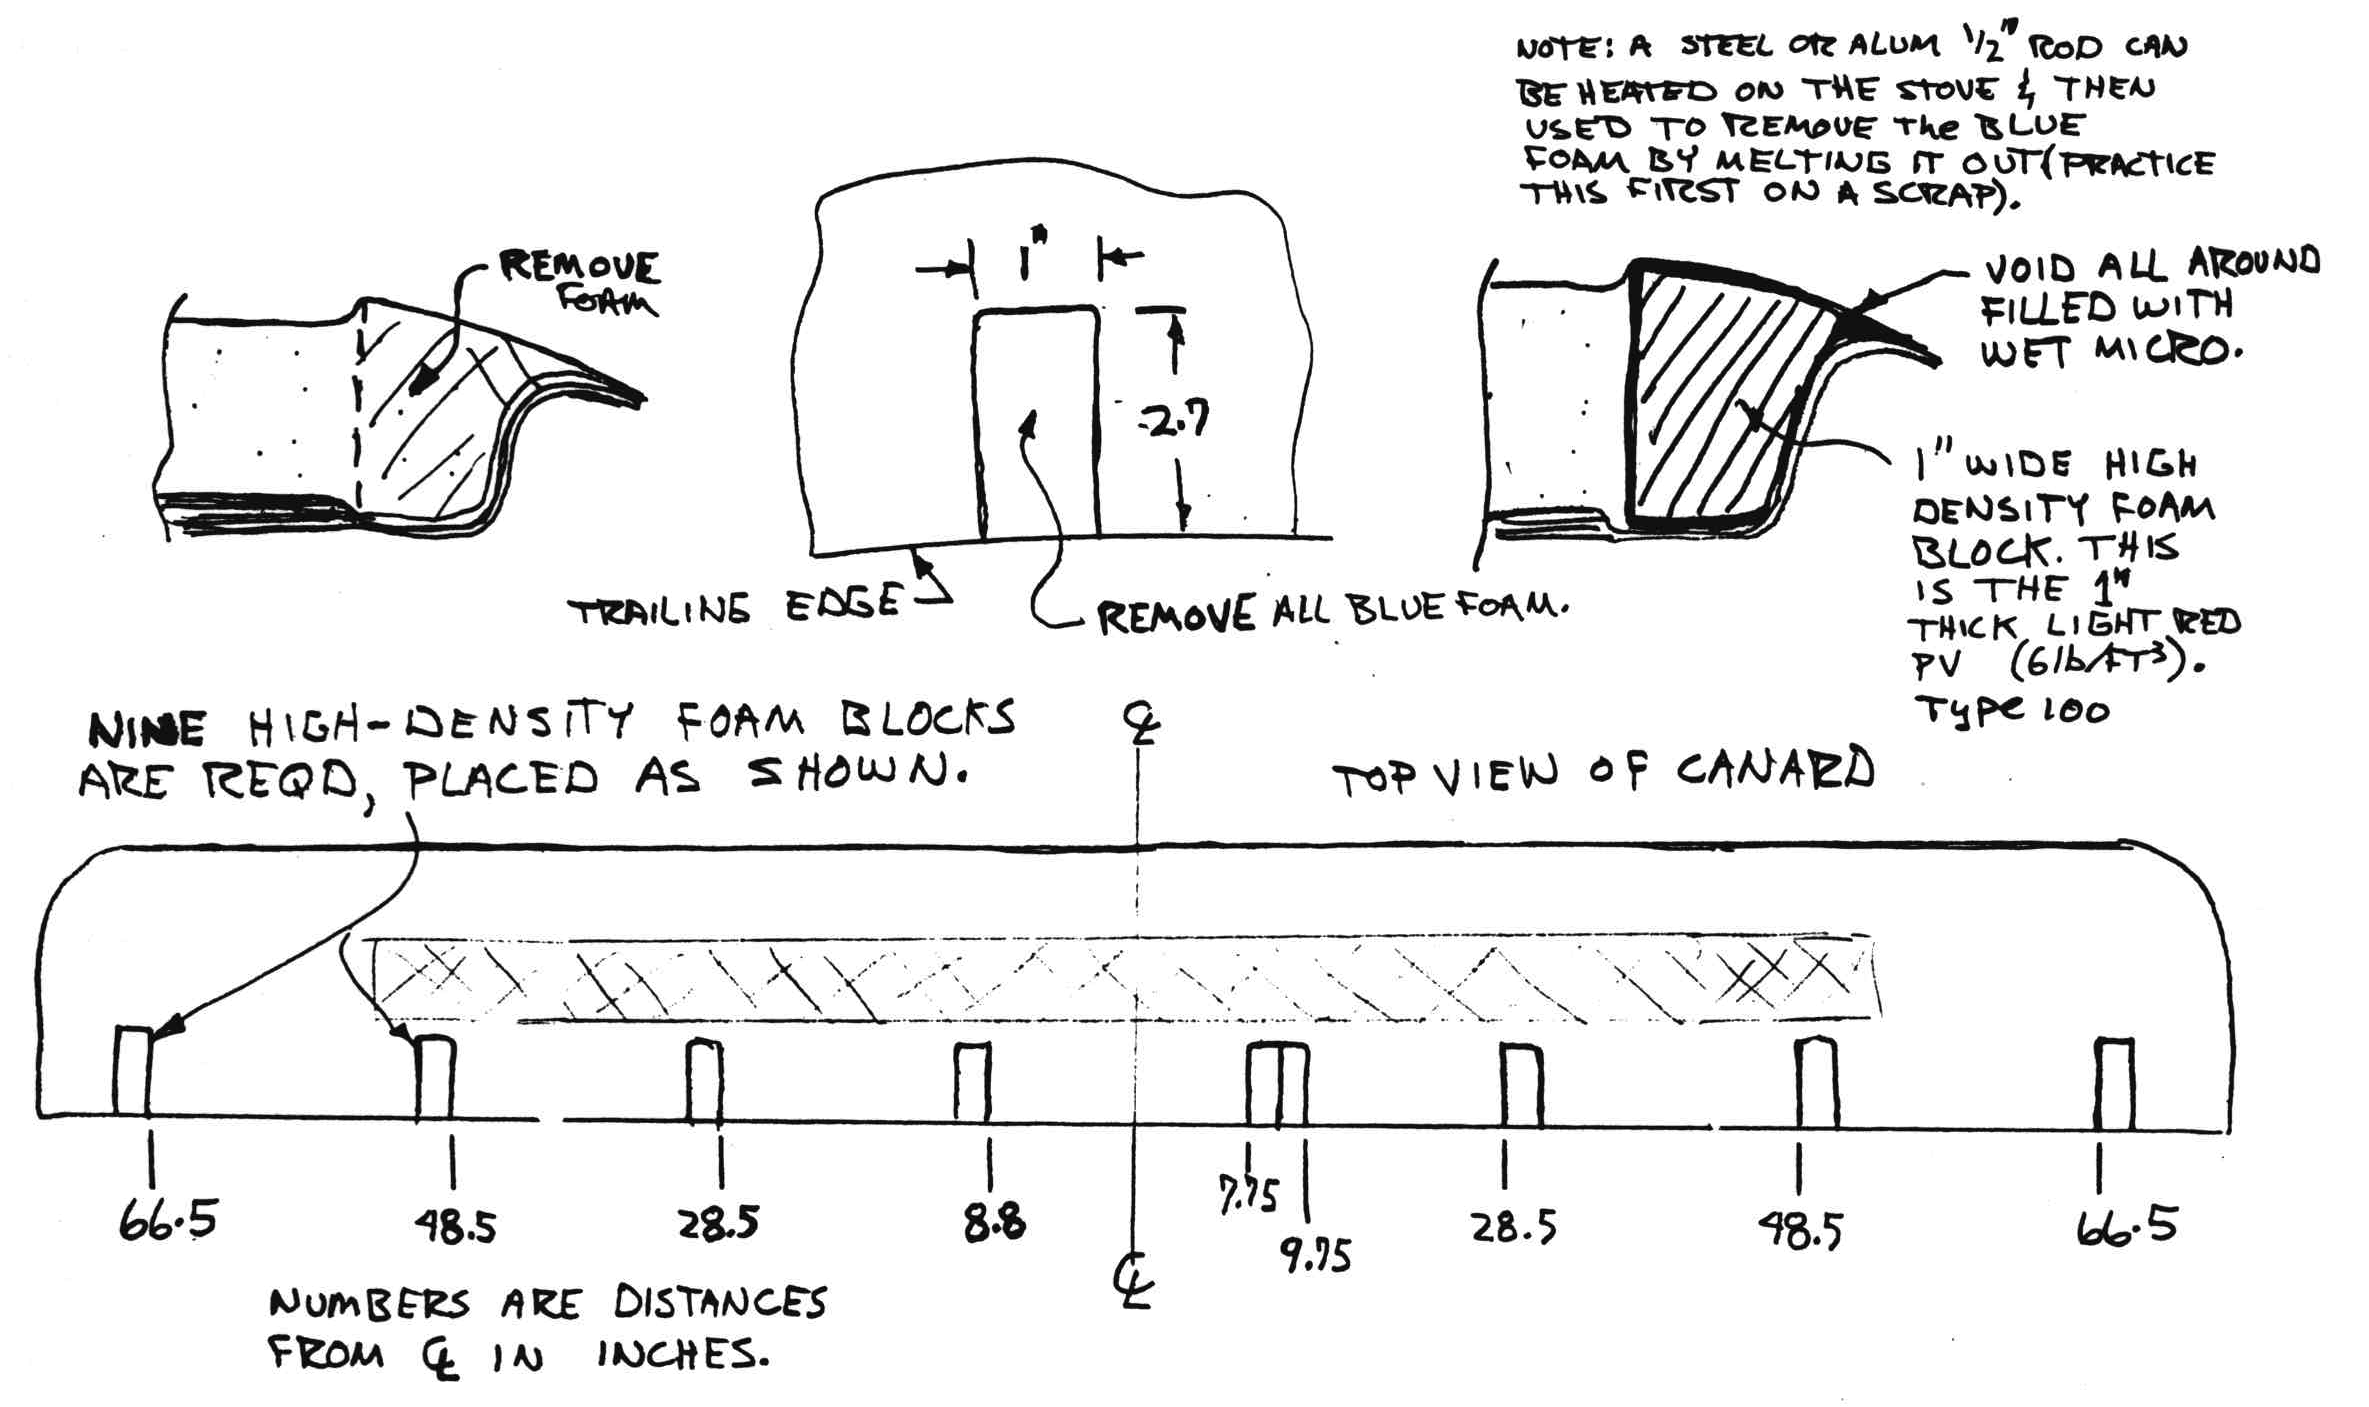 NOTE: A STEEL OR ALUM 1/2" ROD CAN
BE HEATED ON THE STOVE & THEN
USED TO REMOVE The BLUE
FOAM BY MELTING IT OUT (PRACTICE
THIS FIRST ON A SCRAP).
REMOVE
FOAM
1"
2.7
TRAILING EDGE
REMOVE ALL BLUE FOAM.
VOID ALL AROUND
FILLED WITH
WET MICRO.
1" WIDE HIGH
DENSITY FOAM
BLOCK. THIS
IS THE 1"
THICK LIGHT RED
PV (6lb/FT³).
Type 100
NINE HIGH-DENSITY FOAM BLOCKS
ARE REQD, PLACED AS SHOWN.
℄
TOP VIEW OF CANARD
66.5 48.5 28.5 8.8 7.75 9.75 28.5 48.5 66.5
℄
NUMBERS ARE DISTANCES
FROM ℄ IN INCHES.